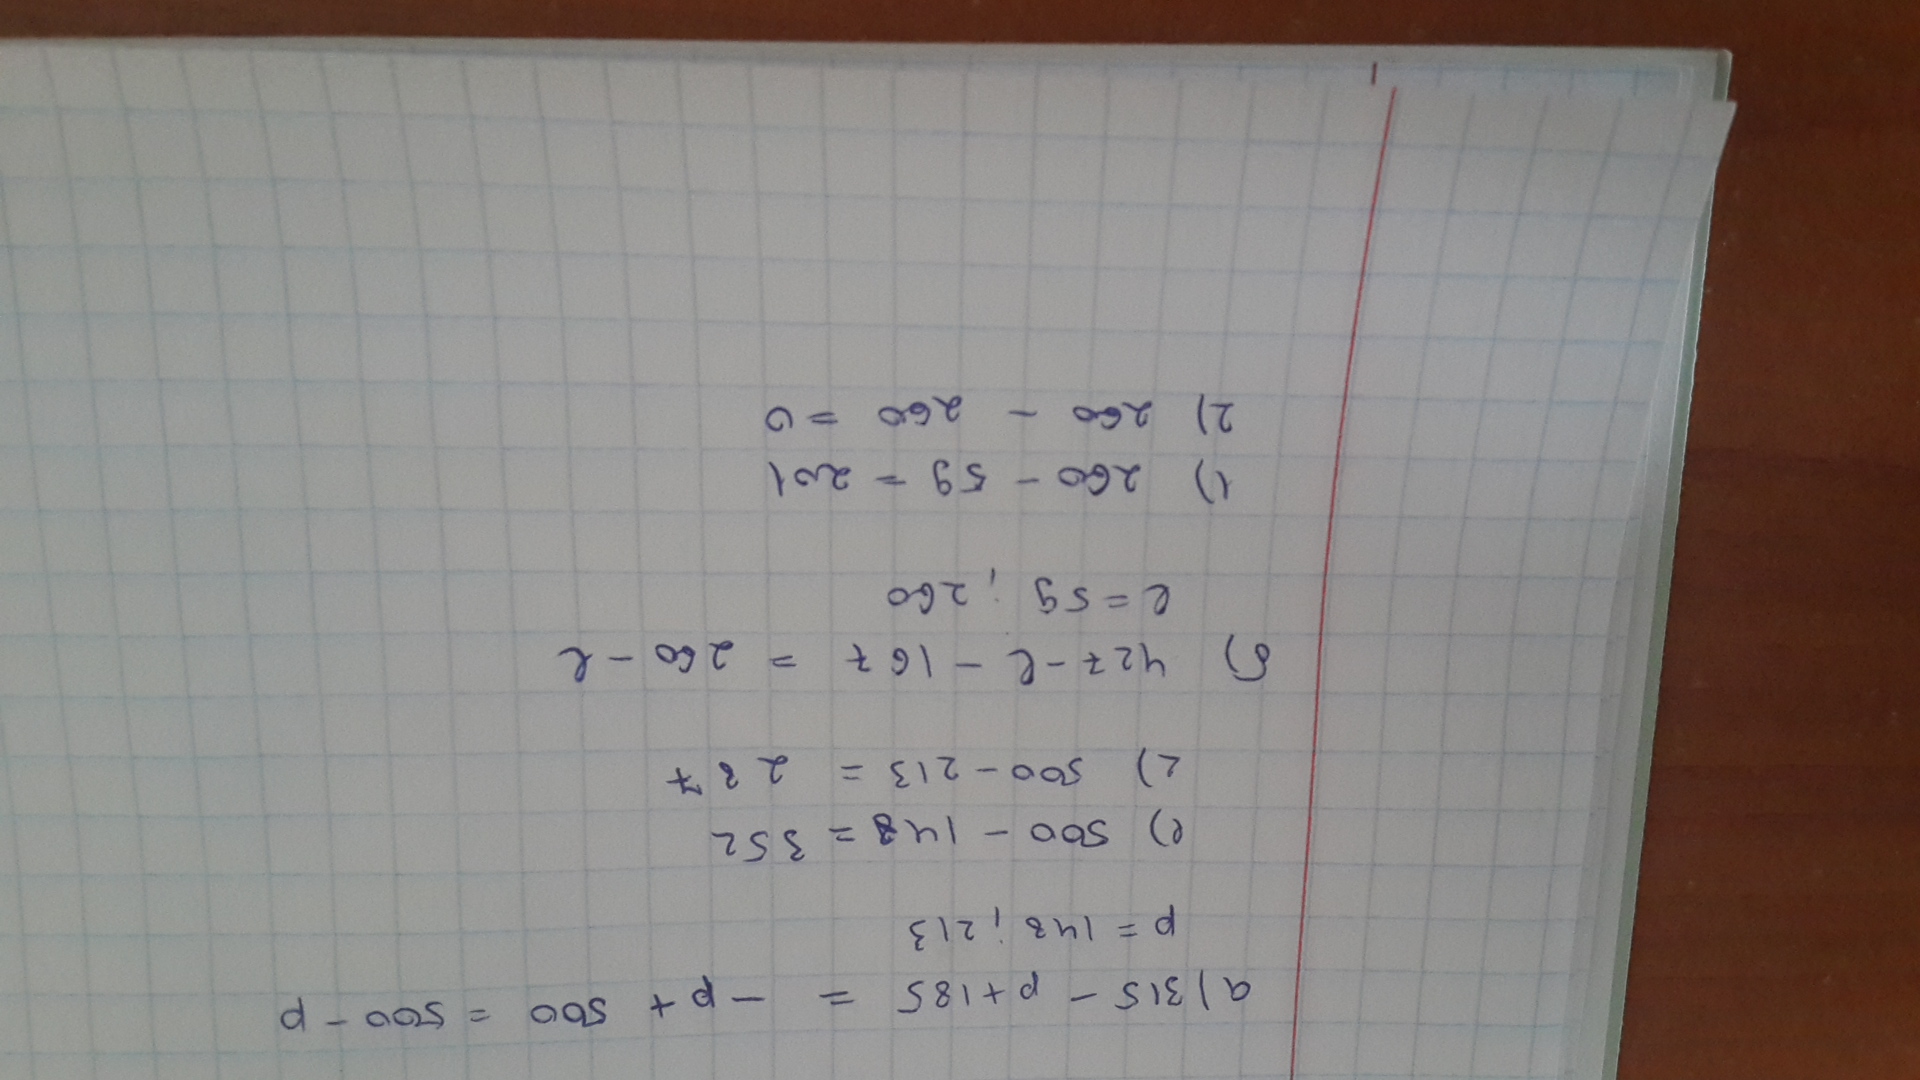 а) 315 - p + 185 = - p + 500 = 500 - p
p = 148; 213
1) 500 - 148 = 352
2) 500 - 213 = 287
б) 427 - l - 167 = 260 - l
l = 59; 260
1) 260 - 59 = 201
2) 260 - 260 = 0